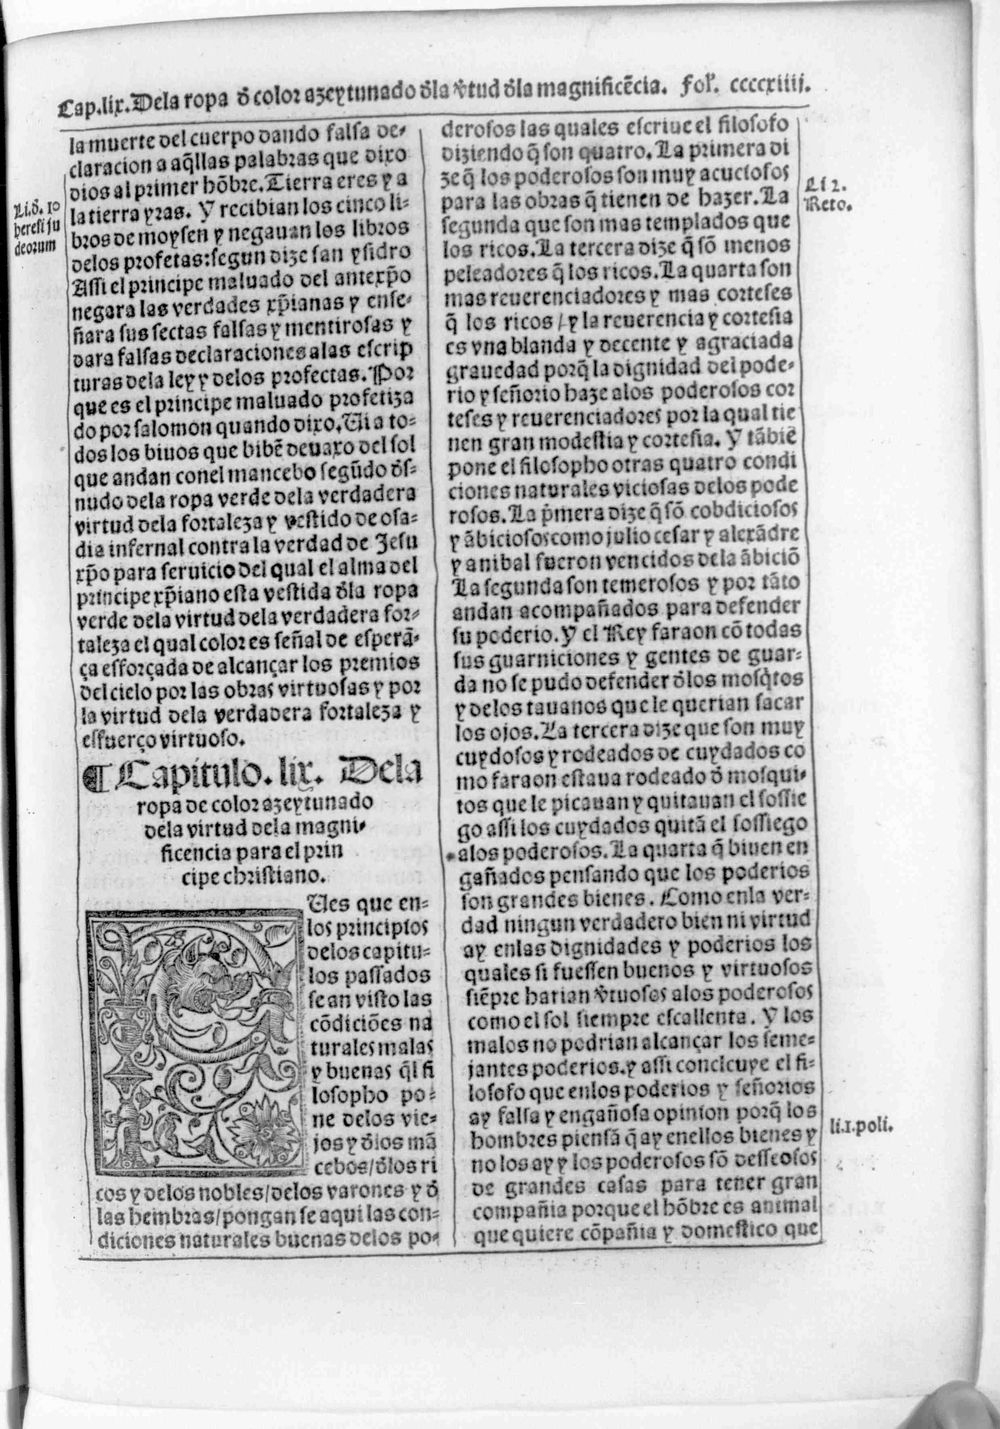 Cap.lix. Dela ropa đ color azeytunado đla v̄tud đla magnificẽcia. Fol. ccccxiiij.
la muerte del cuerpo dando falsa de-
claracion a aq̃llas palabras que dixo
dios al primer hõbre. Tierra eres y a
la tierra yras. Y recibian los cinco li-
bros de moysen y negauan los libros
delos profetas: segun dize san ysidro
Assi el principe maluado del antexp̃o
negara las verdades xp̃ianas y ense-
ñara sus sectas falsas y mentirosas y
dara falsas declaraciones alas escrip
turas dela ley y delos profectas. Por
que es el principe maluado profetiza
do por salomon quando dixo. Ui a to-
dos los biuos que bibẽ deuaxo del sol
que andan conel mancebo segũdo đs-
nudo dela ropa verde dela verdadera
virtud dela fortaleza y vestido de osa-
dia infernal contra la verdad de Jesu
xp̃o para seruicio del qual el alma del
principe xp̃iano esta vestida đla ropa
verde dela virtud dela verdadera for-
taleza el qual color es señal de esperã-
ça esforçada de alcançar los premios
del cielo por las obras virtuosas y por
la virtud dela verdadera fortaleza y
esfuerço virtuoso.
Li.đ. 10
heresi ju
deorum
¶ Capitulo. lix. Dela
ropa de color azeytunado
dela virtud dela magni-
ficencia para el prin
cipe christiano.
Ues que en-
los principios
delos capitu-
los passados
se an visto las
cõdiciões na
turales malas
y buenas q̃l fi
losopho po-
ne delos vie-
jos y đlos mã
cebos/đlos ri
cos y delos nobles/delos varones y đ
las hembras/pongan se aqui las con-
diciones naturales buenas delos po-
derosos las quales escriue el filosofo
diziendo q̃ son quatro. La primera di
ze q̃ los poderosos son muy acuciosos
para las obras q̃ tienen de hazer. La
segunda que son mas templados que
los ricos. La tercera dize q̃ sõ menos
peleadores q̃ los ricos. La quarta son
mas reuerenciadores y mas corteses
q̃ los ricos/y la reuerencia y cortesia
es vna blanda y decente y agraciada
grauedad porq̃ la dignidad del pode-
rio y señorio haze alos poderosos cor
teses y reuerenciadores por la qual tie
nen gran modestia y cortesia. Y tãbiẽ
pone el filosopho otras quatro condi
ciones naturales viciosas delos pode
rosos. La p̃mera dize q̃ sõ cobdiciosos
y ãbiciosos como julio cesar y alexãdre
y anibal fueron vencidos dela ãbiciõ
La segunda son temerosos y por tãto
andan acompañados para defender
su poderio. Y el Rey faraon cõ todas
sus guarniciones y gentes de guar-
da no se pudo defender đlos mosq̃tos
y delos tauanos que le querian sacar
los ojos. La tercera dize que son muy
cuydosos y rodeados de cuydados co
mo faraon estaua rodeado đ mosqui-
tos que le picauan y quitauan el sossie
go assi los cuydados quitã el sossiego
alos poderosos. La quarta q̃ biuen en
gañados pensando que los poderios
son grandes bienes. Como enla ver-
dad ningun verdadero bien ni virtud
ay enlas dignidades y poderios los
quales si fuessen buenos y virtuosos
siẽpre harian v̄tuosos alos poderosos
como el sol siempre escallenta. Y los
malos no podrian alcançar los seme-
jantes poderios. y assi concluye el fi-
losofo que enlos poderios y señorios
ay falsa y engañosa opinion porq̃ los
hombres piensã q̃ ay enellos bienes y
no los ay y los poderosos sõ desseosos
de grandes casas para tener gran
compañia porque el hõbre es animal
que quiere cõpañia y domestico que
Li 2.
Reto.
li.1.poli.